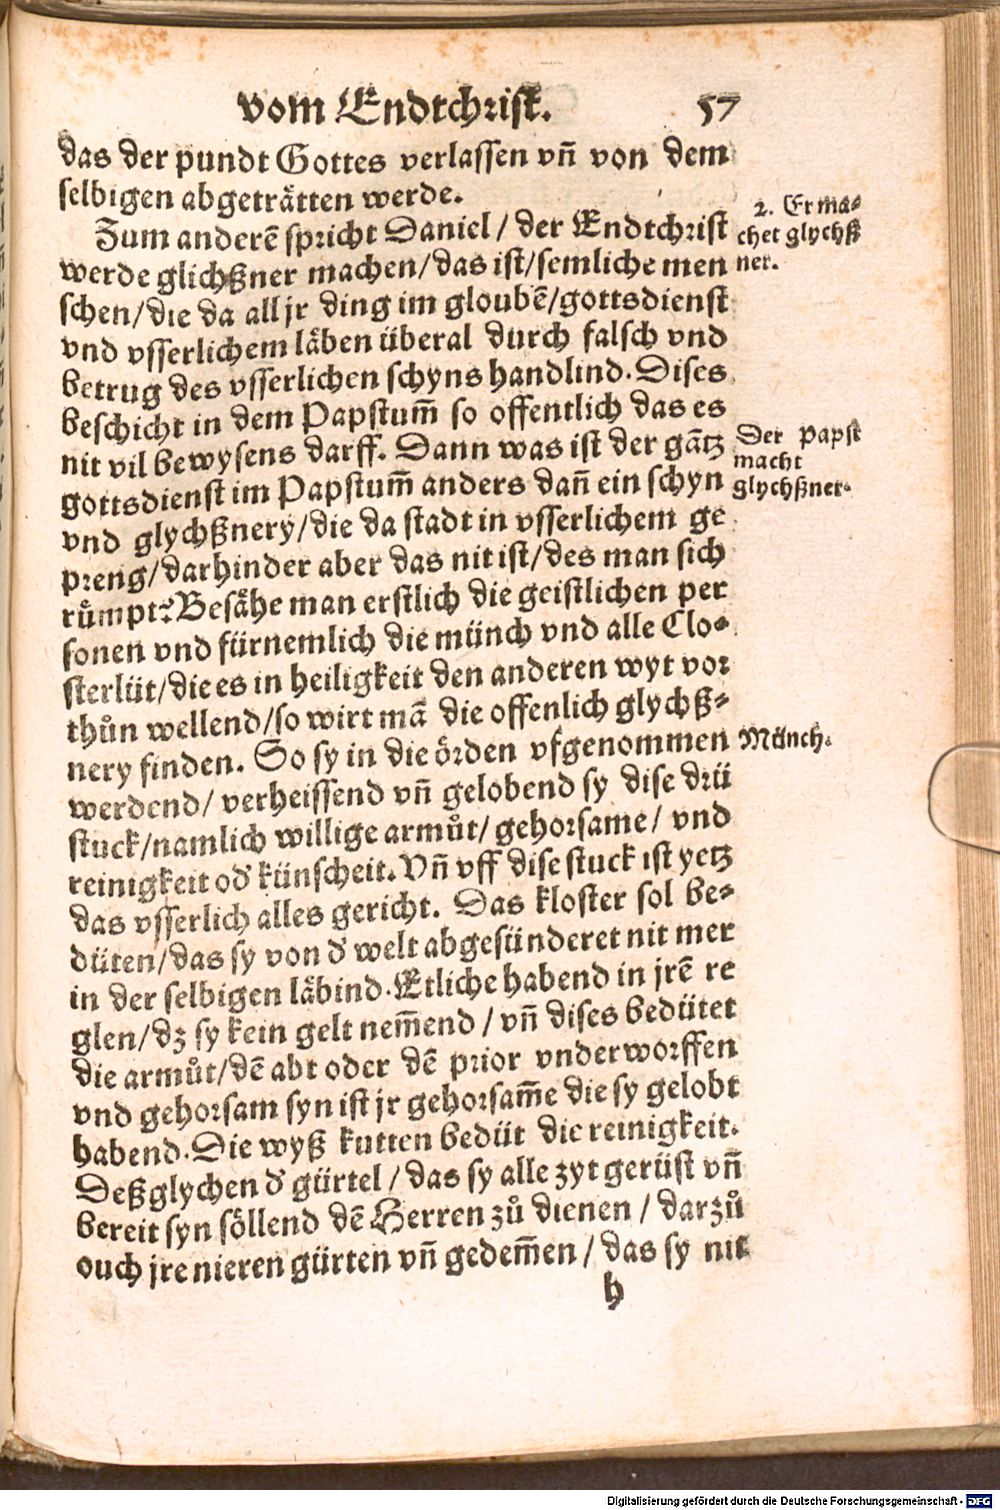 vom Endtchrist. 57
das der pundt Gottes verlassen vñ von dem
selbigen abgetråtten werde.
Zum anderẽ spricht Daniel / der Endtchrist
2. Er ma⸗
chet glychß
ner.
werde glichßner machen/das ist/semliche men
schen/die da all jr ding im gloubẽ/gottsdienst
vnd vsserlichem låben überal durch falsch vnd
betrug des vsserlichen schyns handlind. Dises
beschicht in dem Papstum̃ so offentlich das es
nit vil bewysens darff. Dann was ist der gãtz
Der Papst
macht
glychßner.
gottsdienst im Papstum̃ anders dañ ein schyn
vnd glychßnery/die da stadt in vsserlichem ge
preng/darhinder aber das nit ist/des man sich
růmpt? Besåhe man erstlich die geistlichen per
sonen vnd fürnemlich die münch vnd alle Clo⸗
sterlüt/die es in heiligkeit den anderen wyt vor
thůn wellend/so wirt mã die offenlich glychß⸗
nery finden. So sy in die örden vfgenommen
Münch.
werdend/ verheissend vñ gelobend sy dise drü
stuck/namlich willige armůt/ gehorsame/ vnd
reinigkeit od' künscheit. Vñ vff dise stuck ist yetz
das vsserlich alles gericht. Das kloster sol be⸗
düten/das sy von d' welt abgesünderet nit mer
in der selbigen låbind. Etliche habend in jrẽ re
glen/dz sy kein gelt nem̃end / vñ dises bedütet
die armůt/dẽ abt oder dẽ prior vnderworffen
vnd gehorsam syn ist jr gehorsam̃e die sy gelobt
habend. Die wyß kutten bedüt die reinigkeit.
Deßglychen d' gürtel / das sy alle zyt gerüst vñ
bereit syn söllend dẽ Herren zů dienen / darzů
ouch jre nieren gürten vñ gedem̃en / das sy nit
h
Digitalisierung gefördert durch die Deutsche Forschungsgemeinschaft - DFG